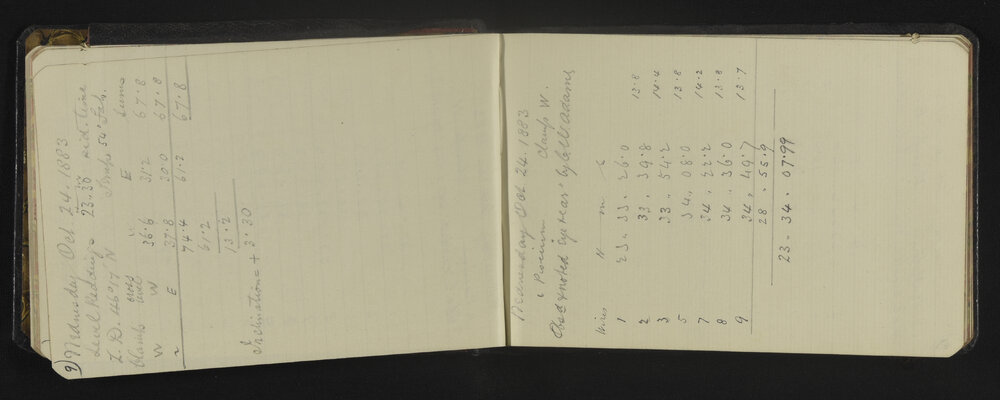 9) Wednesday Oct 24.1883
Level Reading 23.30 sid. time
L.D. 4617 N Temp 54° Fah.
Clamp cross level W E Sums
W W 36.6 31.2 67.8
E 37.8 30.0 67.8
74.4 61.2 67.8
61.2
13.2
Inclination = + 3.30
Wednesday Oct 24.1883
ι Piscium Clamp W.
Obsd & noted Eye & ear by C.W. Adams
Wires h m s
1 23. 33. 26.0
2 33. 39.8 13.8
3 33. 54.2 14.4
5 34. 08.0 13.8
7 34. 22.2 14.2
8 34. 36.0 13.8
9 34. 49.7 13.7
28. 55.9
23. 34. 07.99